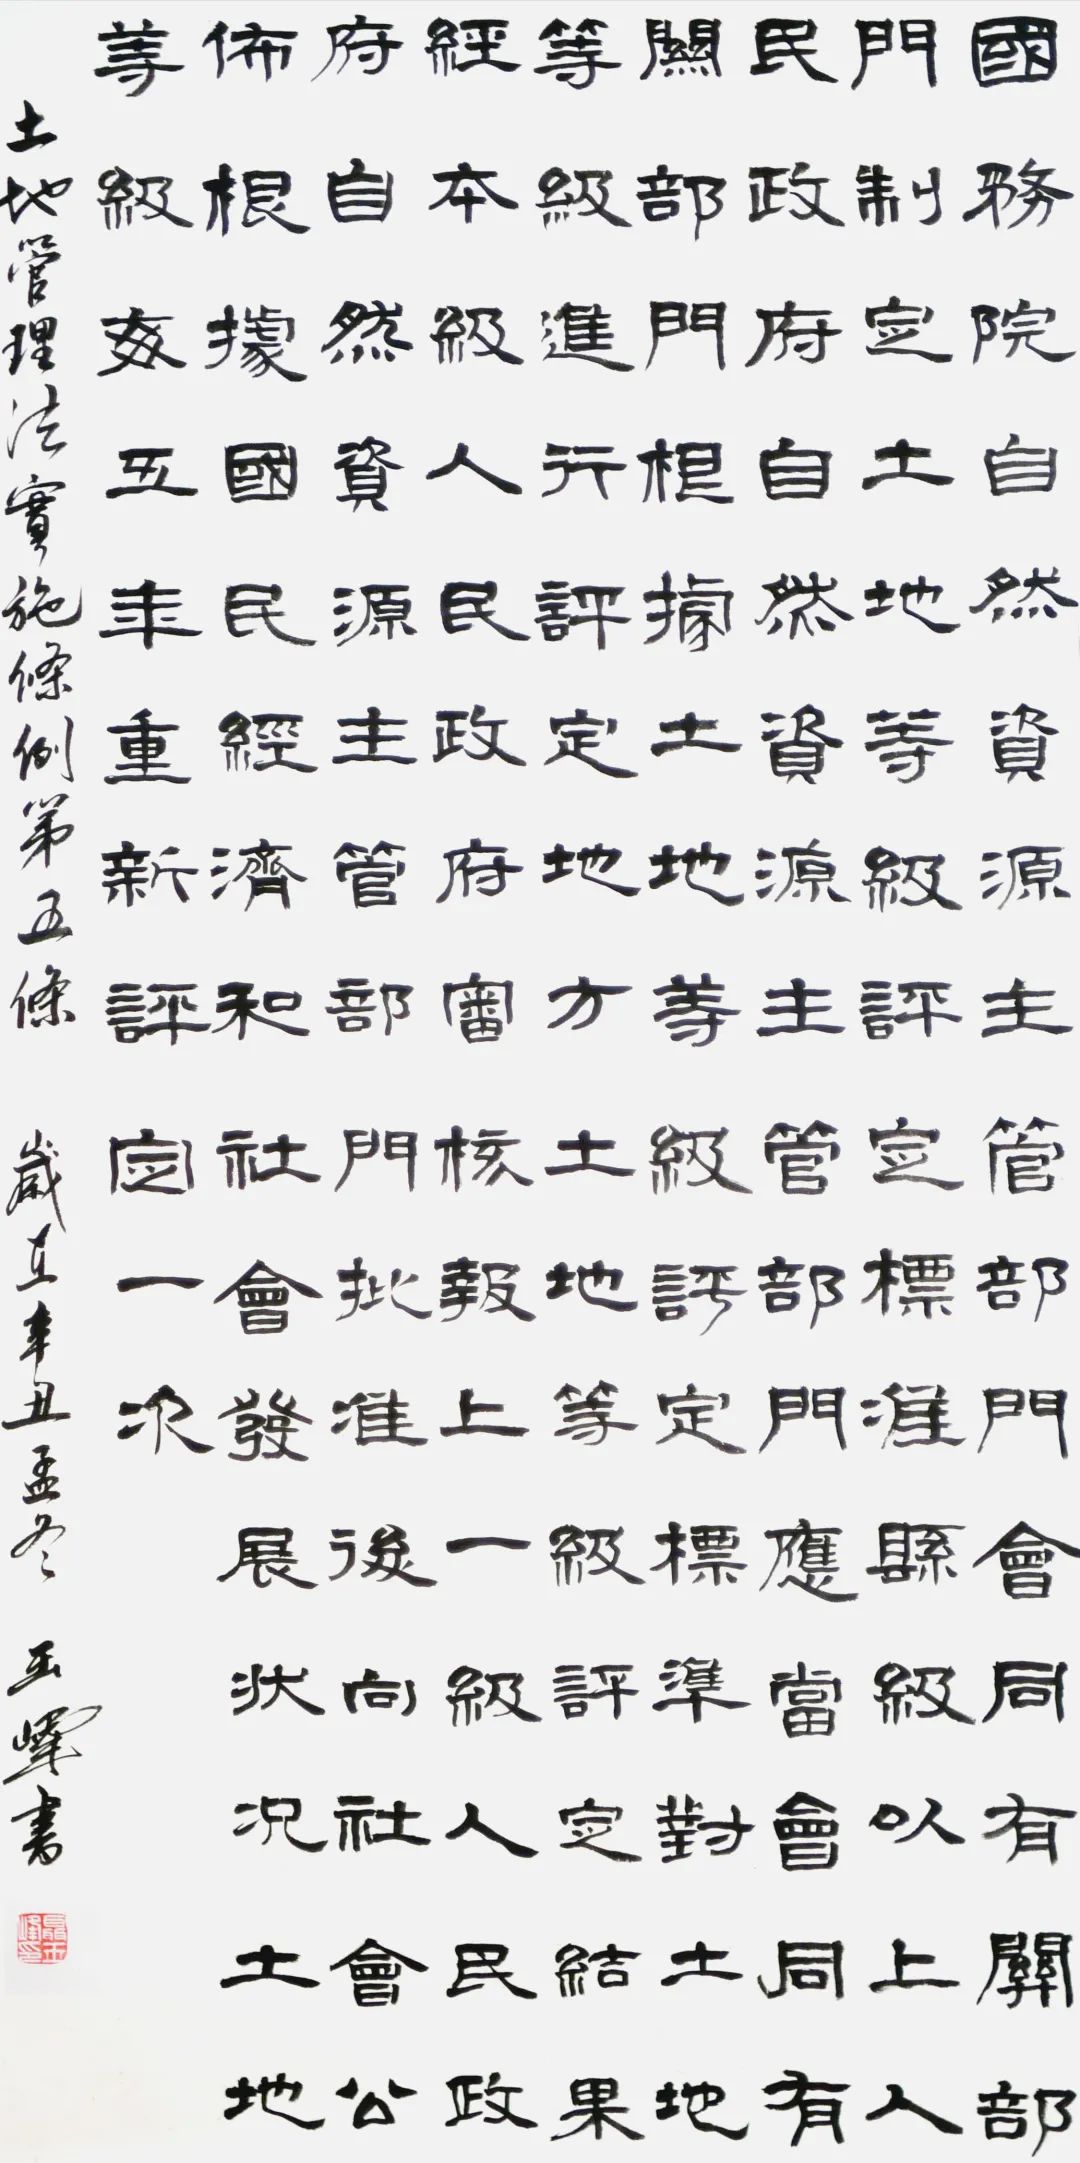 國務院自然資源主管部門會同有關部
門制定土地等級評定標准縣級以上人
民政府自然資源主管部門應當會同有
關部門根據土地等級評定標準對土地
等級進行評定地方土地等級評定結果
經本級人民政府審核報上一級人民政
府自然資源主管部門批准後向社會公
佈根據國民經濟和社會發展状况土地
等級每五年重新評定一次
土地管理法實施條例第五條 歲在辛丑孟冬 玉峰書